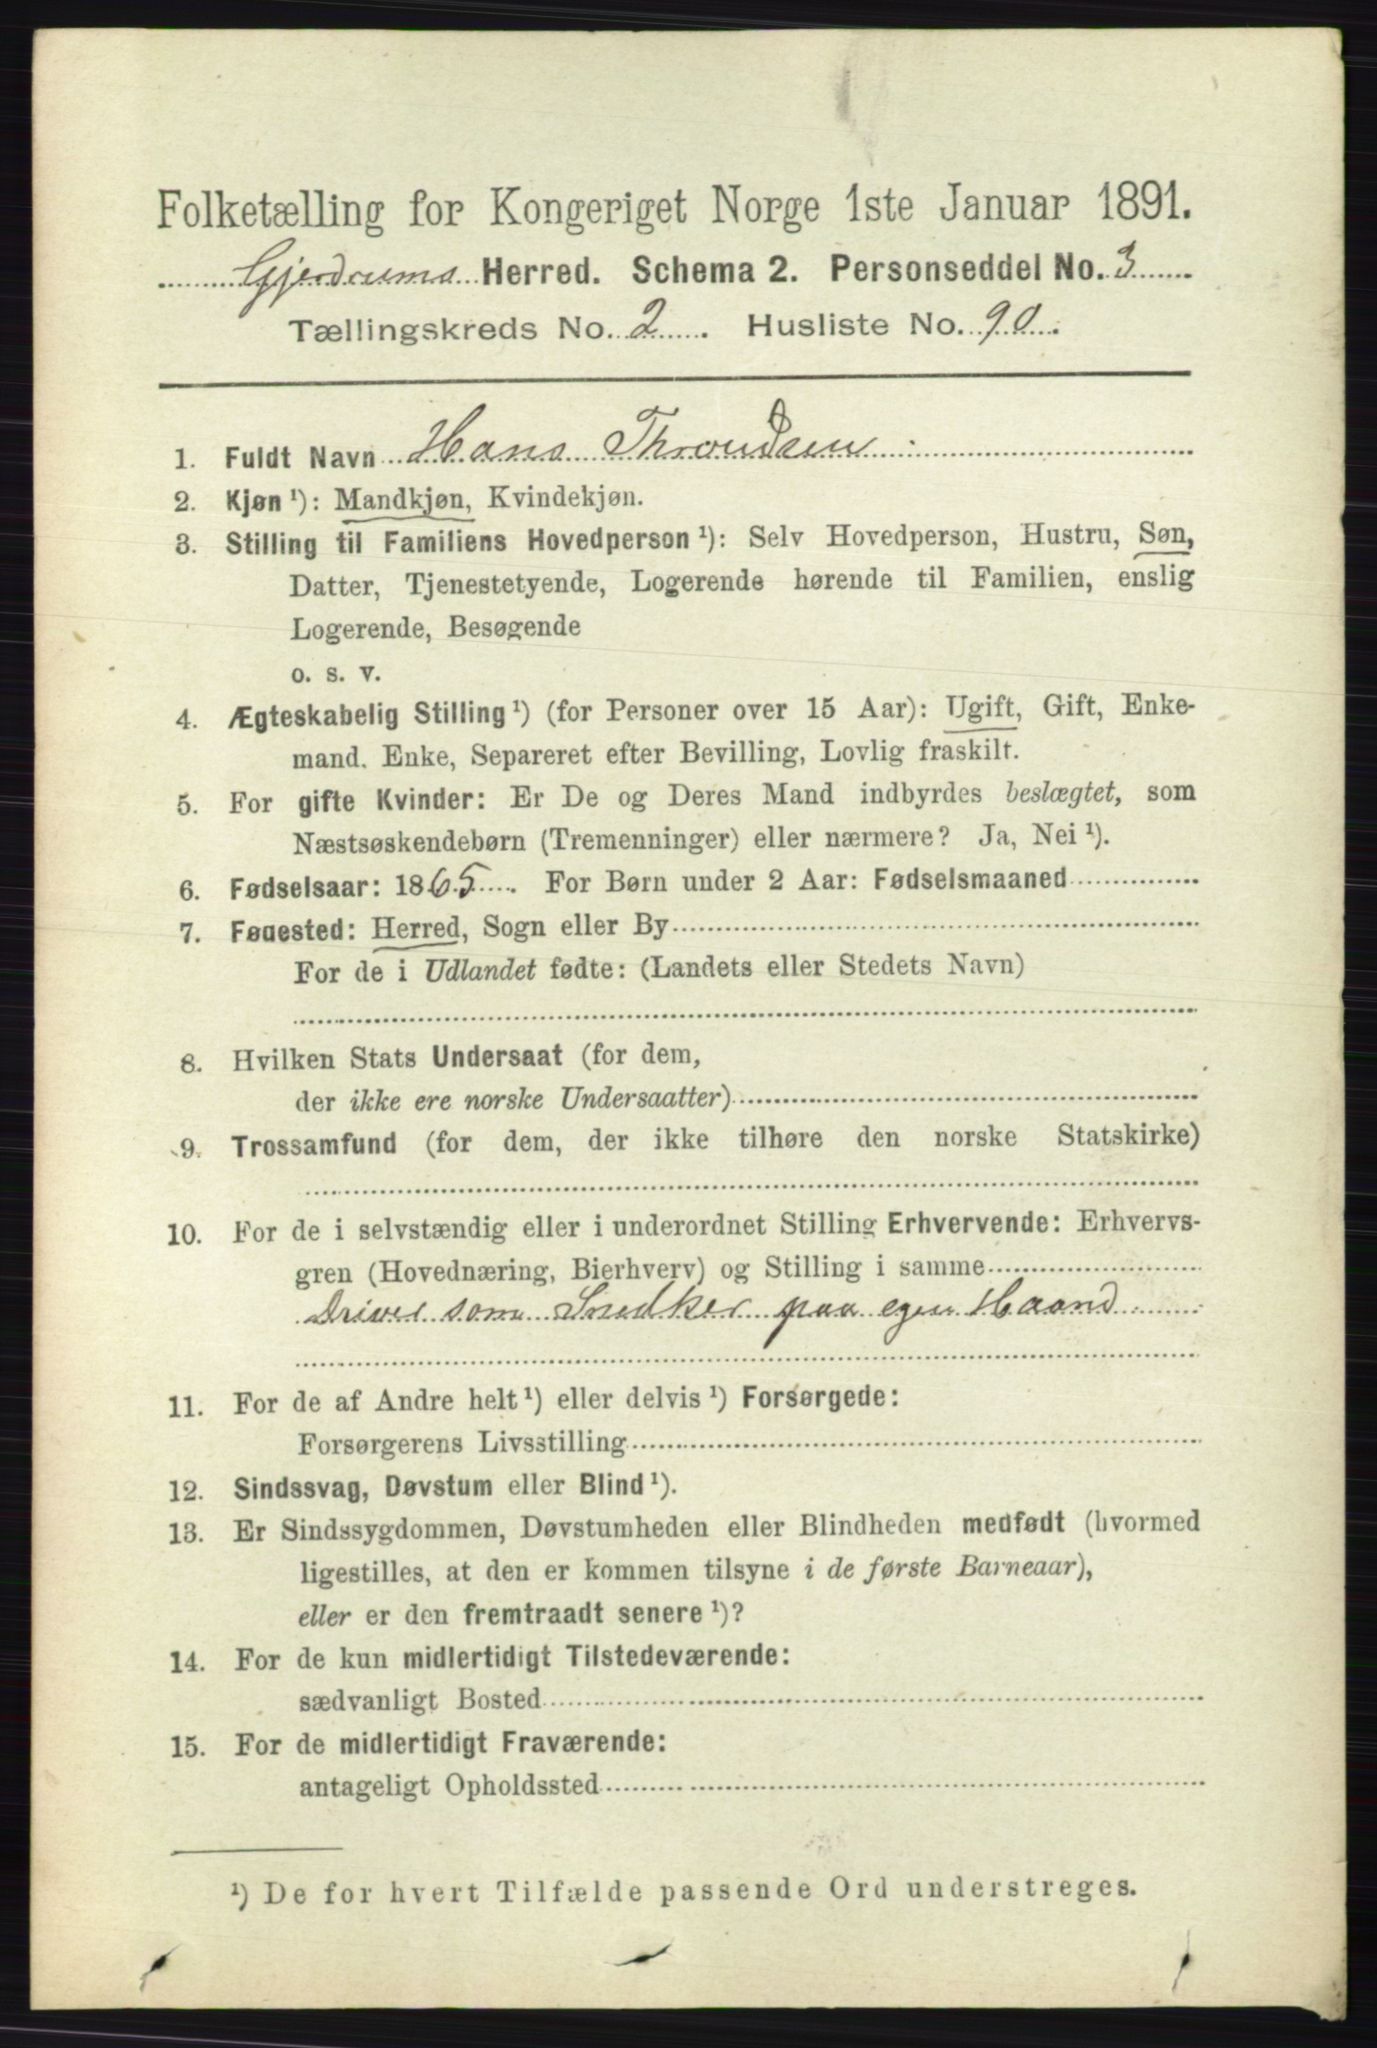 Folketælling for Kongeriget Norge 1ste Januar 1891.
Gjerdrums Herred. Schema 2. Personseddel No. 3
Tællingskreds No. 2 . Husliste No. 90.
1. Fuldt Navn Hans Throndsen
2. Kjøn ¹): Mandkjøn, Kvindekjøn.
3. Stilling til Familiens Hovedperson ¹): Selv Hovedperson, Hustru, Søn,
Datter, Tjenestetyende, Logerende hørende til Familien, enslig
Logerende, Besøgende
o. s. v.
4. Ægteskabelig Stilling ¹) (for Personer over 15 Aar): Ugift, Gift, Enke-
mand. Enke, Separeret efter Bevilling, Lovlig fraskilt.
5. For gifte Kvinder: Er De og Deres Mand indbyrdes beslægtet, som
Næstsøskendebørn (Tremenninger) eller nærmere? Ja, Nei ¹).
6. Fødselsaar: 1865. For Børn under 2 Aar: Fødselsmaaned
7. Føuested: Herred, Sogn eller By
For de i Udlandet fødte: (Landets eller Stedets Navn)
8. Hvilken Stats Undersaat (for dem,
der ikke ere norske Undersaatter)
9. Trossamfund (for dem, der ikke tilhøre den norske Statskirke)
10. For de i selvstændig eller i underordnet Stilling Erhvervende: Erhvervs-
gren (Hovednæring, Bierhverv) og Stilling i samme
Driver som Snedker paa egen Haand
11. For de af Andre helt ¹) eller delvis ¹) Forsørgede:
Forsørgerens Livsstilling
12. Sindssvag, Døvstum eller Blind ¹).
13. Er Sindssygdommen, Døvstumheden eller Blindheden medfødt (hvormed
ligestilles, at den er kommen tilsyne i de første Barneaar),
eller er den fremtraadt senere ¹)?
14. For de kun midlertidigt Tilstedeværende:
sædvanligt Bosted
15. For de midlertidigt Fraværende:
antageligt Opholdssted
¹) De for hvert Tilfælde passende Ord understreges.